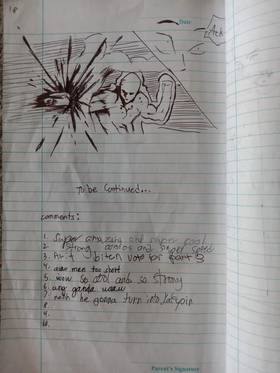 18
Date
Ack
To be continued...
comments:
1. Super amazing and super cool
2. strong and super speed
3. vote for part 3
4. too short
5. wow so cool and so strong
6. ang ganda waaw
7. nah he gonna turn into
8.
9.
10.
Parent's Signature